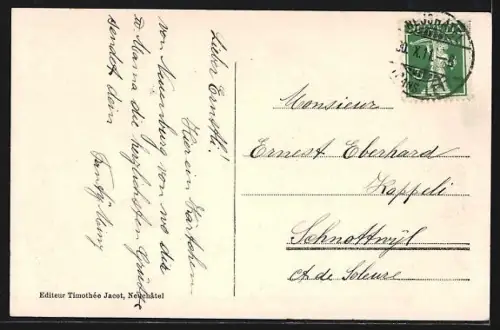 Lieber Ernstli!
Hier ein Kärtchen
von Neuenburg von wo dir
Mama die herzlichsten Grüsse
sendet dein
Monsieur
Ernest Eberhard
Käppeli
Schnottwyl
Ct de Soleure
Editeur Timothée Jacot, Neuchâtel